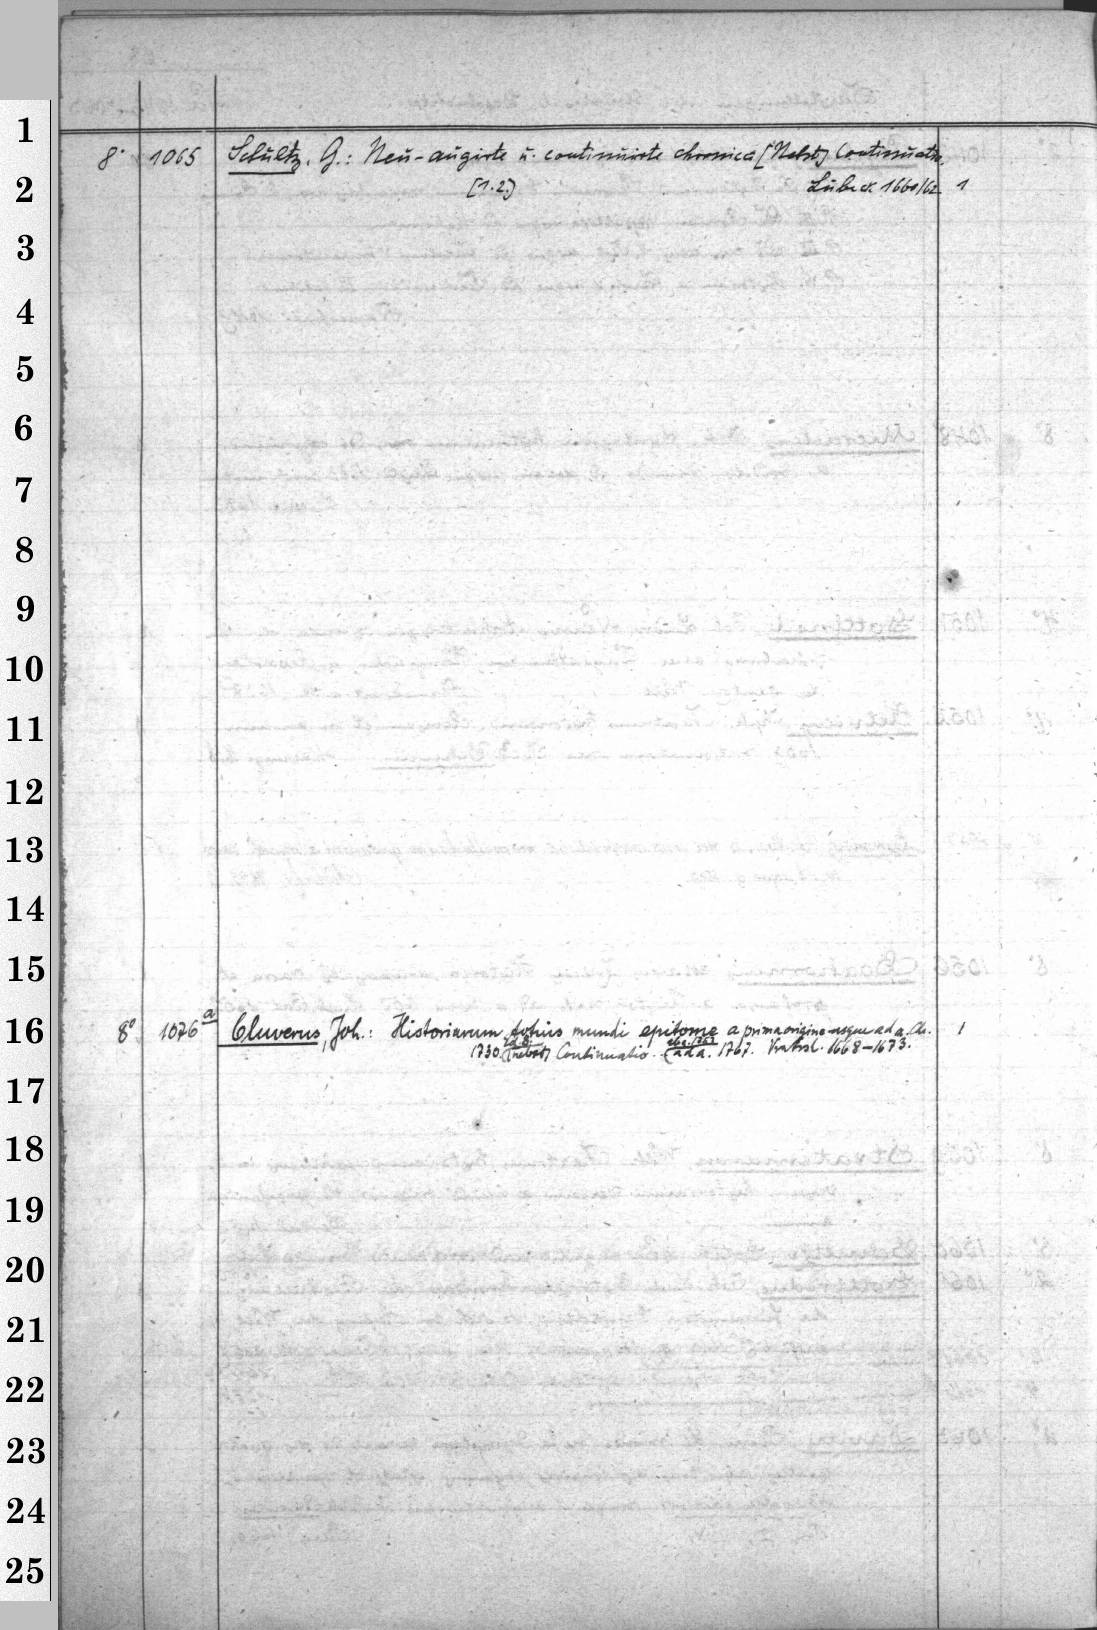 1
8° 1065 Schultz, G.: Neu-augirte u. continuirte chronica [Nebst] Continuatio.
2
[1.2.] Lübeck 1660/62 1
3
4
5
6
7
8
9
10
11
12
13
14
15
16
8° 1076a Cluverus, Joh.: Historiarum totius mundi epitome a prima origine usque ad a. Ch. 1
1730. [nebst] Continuatio.. (ad a. 1767. Vratisl. 1668-1673.
17
18
19
20
21
22
23
24
25